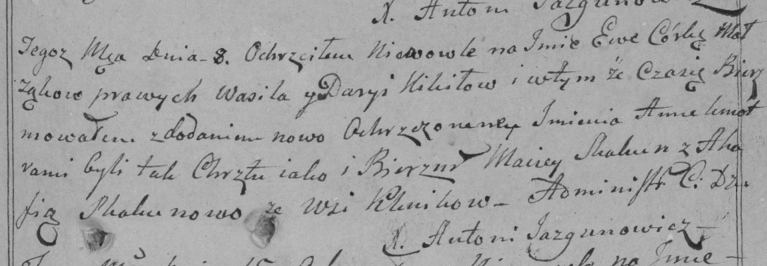 X. Antoni Jazgunow
Tegoz Mca Dnia 8. Ochrzcilem Niemowle na Imie Ewe Córkę Mał
żąkow prawych Wasila y Daryi Nikitow i wtym że Czasię Bierz
mowałem z dodaniem nowo Ochrzczoneney Imienia Anne kmot
rami byli tak Chrztu iako i Bierzm Maciey Skakun z Aha
fią Skakunowo ze Wsi Administr C. D.
X. Antoni Jazgunowicz
na Imie